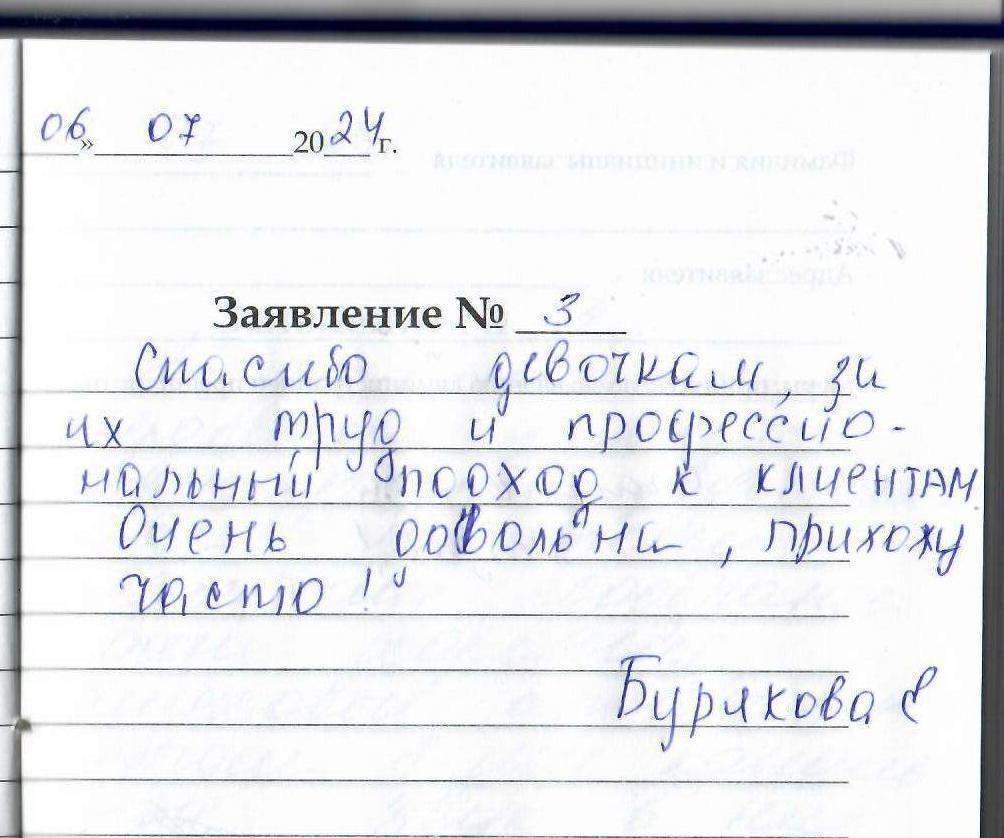 06» 07 2024г.
Заявление № 3
Спасибо девочкам, за
их труд и професcио-
нальный подход к клиентам
Очень довольна, прихожу
часто!
Бурякова Е